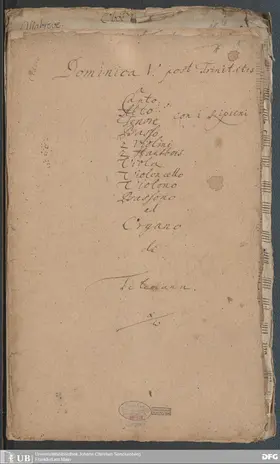 Dominica V. post Trinitatis
a
Canto
Alto
Tenore
Basso
con i Ripieni
2 Violini
2 Hautbois
Viola
Violoncello
Violono
Bassono
ed
Organo
di
Telemann.
UB
Universitätsbibliothek Johann Christian Senckenberg
Frankfurt am Main
DFG